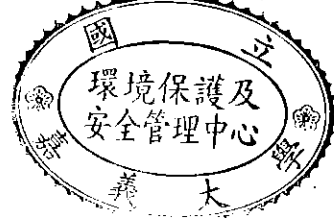 國立嘉義大學
環境保護及
安全管理中心